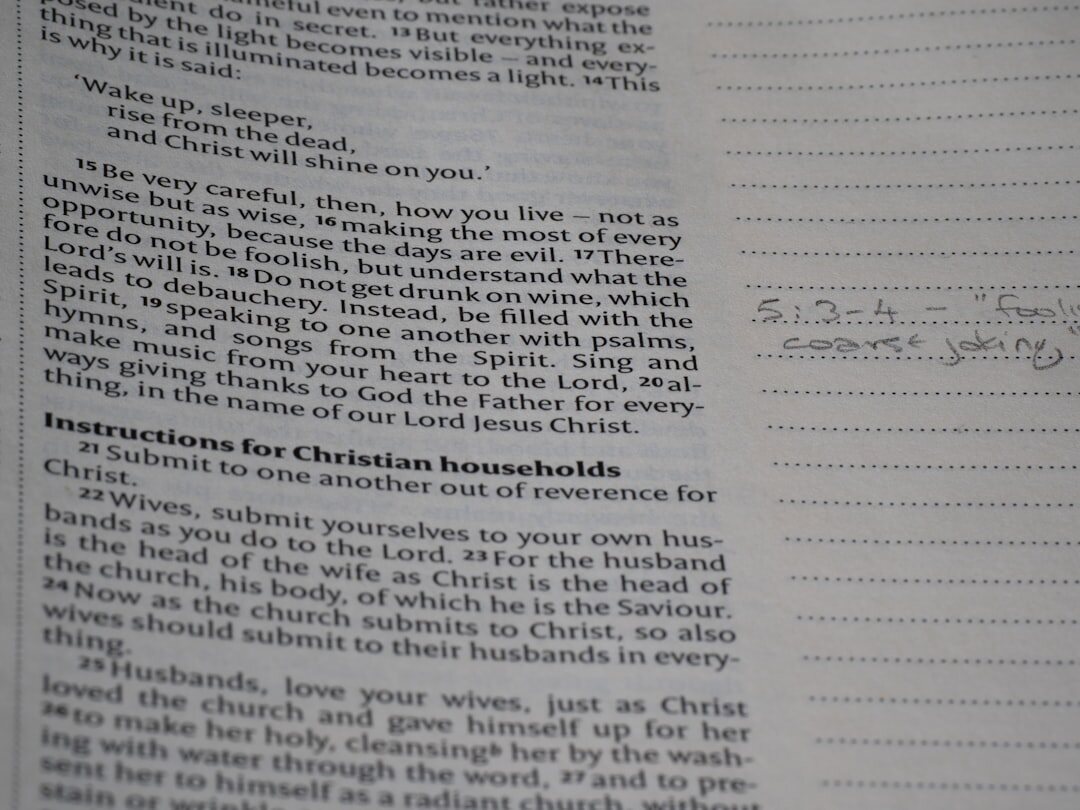 but rather expose
shameful even to mention what the
do in secret. 13 But everything ex-
posed by the light becomes visible – and every-
thing that is illuminated becomes a light. 14 This
is why it is said:
‘Wake up, sleeper,
rise from the dead,
and Christ will shine on you.’
15 Be very careful, then, how you live – not as
unwise but as wise, 16 making the most of every
opportunity, because the days are evil. 17 There-
fore do not be foolish, but understand what the
Lord’s will is. 18 Do not get drunk on wine, which
leads to debauchery. Instead, be filled with the
Spirit, 19 speaking to one another with psalms,
hymns, and songs from the Spirit. Sing and
make music from your heart to the Lord, 20 al-
ways giving thanks to God the Father for every-
thing, in the name of our Lord Jesus Christ.
Instructions for Christian households
21 Submit to one another out of reverence for
Christ.
22 Wives, submit yourselves to your own hus-
bands as you do to the Lord. 23 For the husband
is the head of the wife as Christ is the head of
the church, his body, of which he is the Saviour.
24 Now as the church submits to Christ, so also
wives should submit to their husbands in every-
thing.
25 Husbands, love your wives, just as Christ
loved the church and gave himself up for her
26 to make her holy, cleansing b her by the wash-
ing with water through the word, 27 and to pre-
sent her to himself as a radiant church, without
stain or wrinkle
5:3-4 - "fooli
coarse joking,"